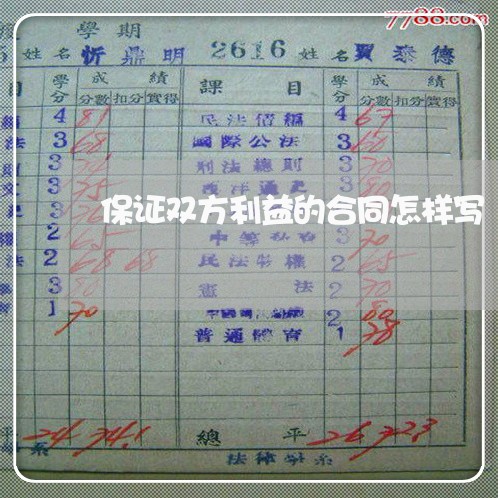 7788.com
學期
姓名 忻鼎明 2616 姓名 賈泰德
目 學分 成績 課目 學分 成績
分數 扣分 實得 分數 扣分 實得
4 81 民法債編 4 67
法 3 68 國際公法 3 60
3 刑法總則 3 70
3 75 西洋通史 3 80
保证双方利益的合同怎样写
2 65 3 70
法 2 68 68 民法物權 2 65
3 80 憲法 2 70
1 70 2 80
普通體育 1 78
平 24 74.1 總平 26 72.3
系 法律學系